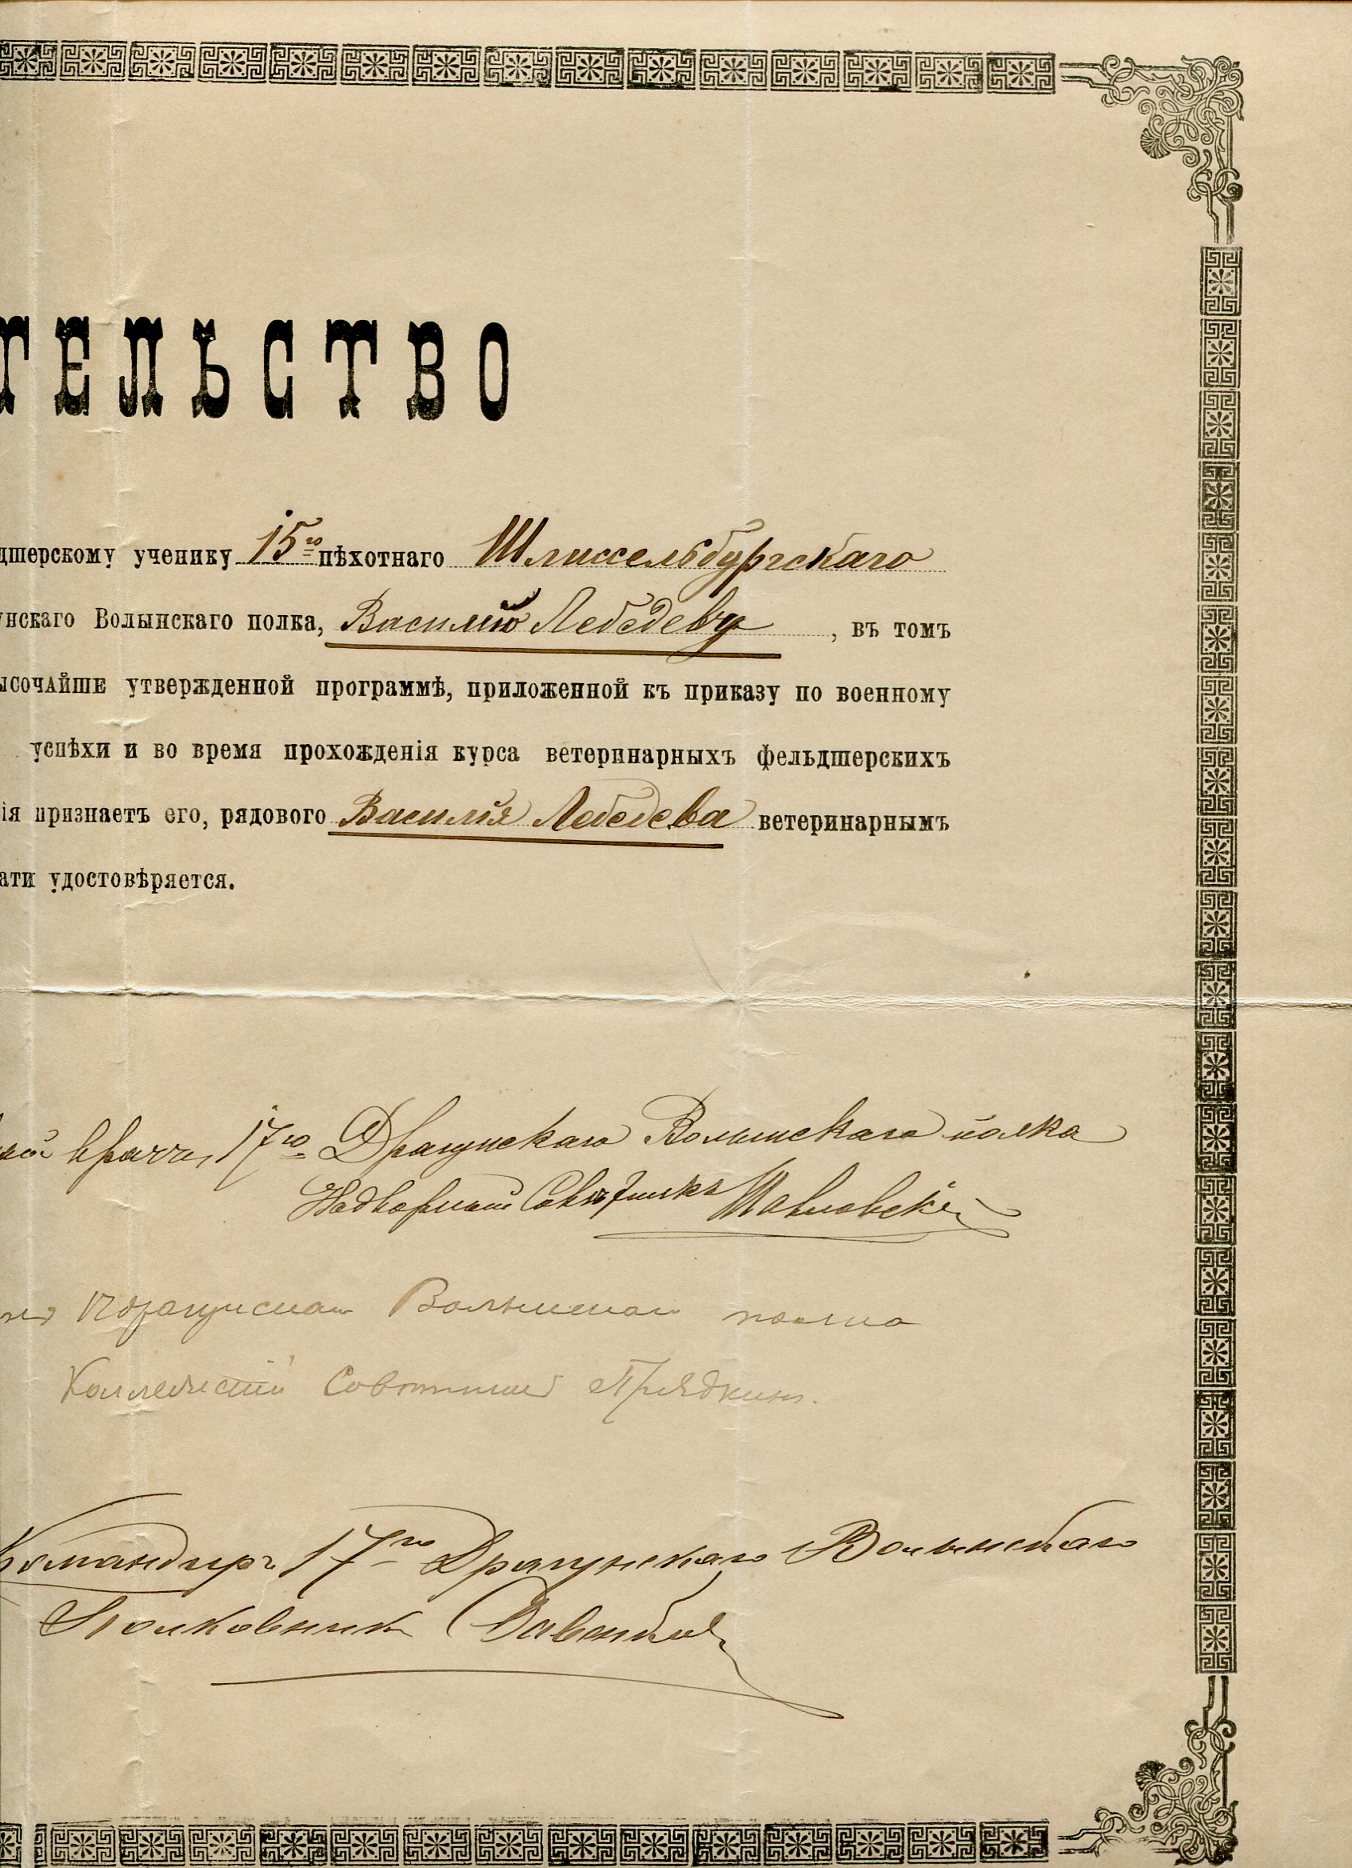 ТЕЛЬСТВО
дшерскому ученику 15го пѣхотнаго Шлиссельбургскаго
унскаго Волынскаго полка, Василію Лебедеву, въ томъ
ысочайше утвержденной программѣ, приложенной къ приказу по военному
успѣхи и во время прохожденія курса ветеринарныхъ фельдшерскихъ
ія признаетъ его, рядового Василія Лебедева ветеринарнымъ
ати удостовѣряется.
врачъ, 17го Драгунскаго Волынскаго полка
Надворный Совѣтникъ Павловскій
Волынскаго полка
Коллежскій Совѣтникъ
Командиръ 17го Драгунскаго Волынскаго
Полковникъ